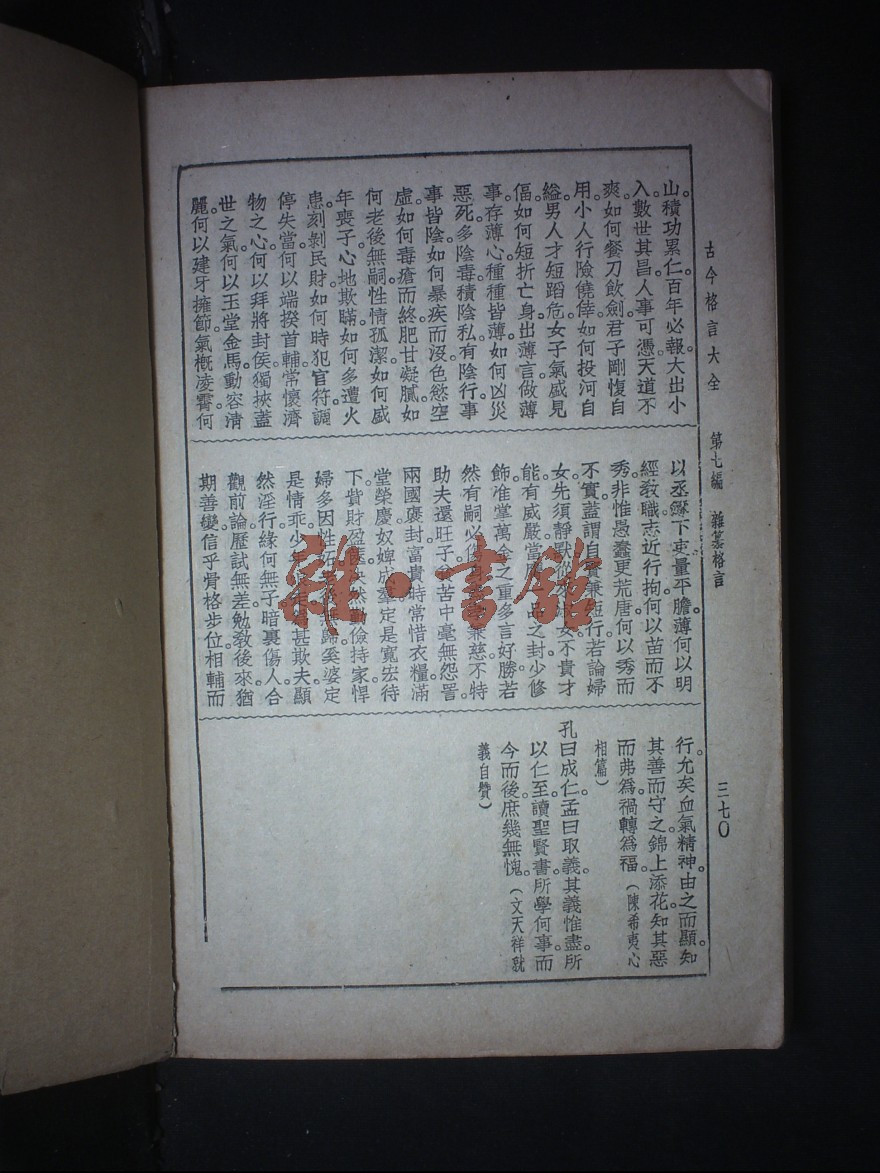 古今格言大全　第七編　雜纂格言　三七〇
山。積功累仁。百年必報。大出小
入。數世其昌。人事可憑。天道不
爽。如何餐刀飲劍。君子剛愎自
用。小人行險僥倖。如何投河自
縊。男人才短蹈危。女子氣盛見
偪。如何短折亡身。出薄言。做薄
事。存薄心。種種皆薄。如何凶災
惡死。多陰毒。積陰私。有陰行。事
事皆陰。如何暴疾而沒。色慾空
虛。如何毒瘡而終。肥甘凝膩。如
何老後無嗣。性情孤潔。如何盛
年喪子。心地欺瞞。如何多遭火
患。刻剝民財。如何時犯官符。調
停失當。何以端揆首輔。常懷濟
物之心。何以拜將封侯。獨挾蓋
世之氣。何以玉堂金馬。動容清
麗。何以建牙擁節。氣概凌霄。何
以丞尉下吏。量平膽薄。何以明
經教職。志近行拘。何以苗而不
秀。非惟愚蠢更荒唐。何以秀而
不實。蓋謂自賢兼短行。若論婦
女。先須靜默。從來淑女不貴才
能。有威嚴。當膺一品之封。少修
飾。准掌萬金之重。多言好勝。若
然有嗣必傷身。孝兼慈。不特
助夫還旺子。貧苦中毫無怨詈。
兩國褒封。富貴時常惜衣糧。滿
堂榮慶。奴婢成羣。定是寬宏待
下。貲財盈筐。決然勤儉持家。悍
婦多因性妬。老後無歸。奚婆定
是情乖。少年為甚欺夫。顯
然淫行。緣何無子。暗裏傷人。合
觀前論。歷試無差。勉教後來。猶
期善變。信乎骨格步位。相輔而
行。允矣血氣精神。由之而顯。知
其善而守之。錦上添花。知其惡
而弗為。禍轉為福。（陳希夷心
相篇）
孔曰成仁。孟曰取義。其義惟盡。所
以仁至。讀聖賢書。所學何事。而
今而後。庶幾無愧。（文天祥就
義自贊）
雜·書館